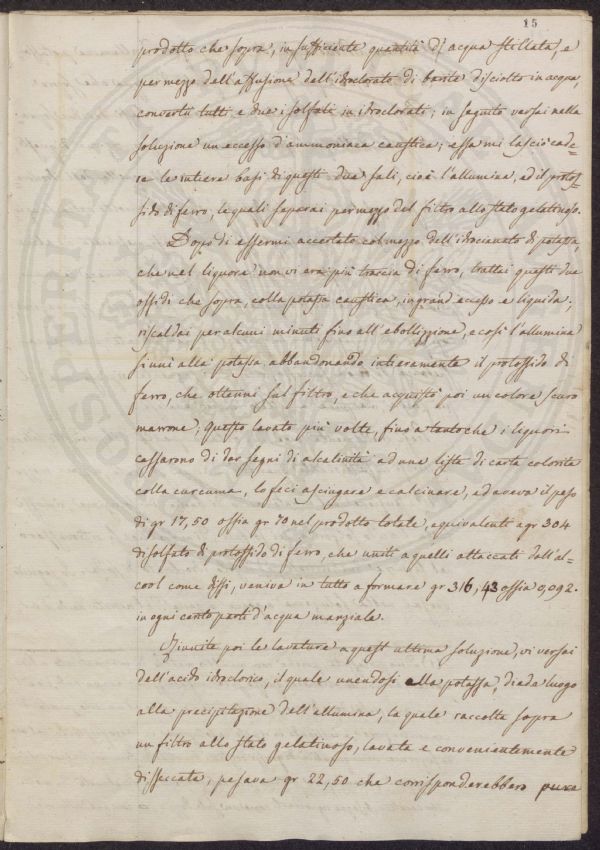 15
prodotto che sopra, in sufficiente quantità d'acqua stillata, e
per mezzo dell'affusione dell'idroclorato di barite disciolto in acqua,
convertii tutti e due i solfati in idroclorati; in seguito versai nella
soluzione un eccesso d'ammoniaca caustica; essa mi lasciò cade=
re le intiere basi di questi due sali, cioè l'allumina, ed il protos=
sido di ferro, le quali separai per mezzo del filtro allo stato gelatinoso.
Dopo di essermi accertato col mezzo dell'idrocianato di potassa,
che nel liquore non vi era più traccia di ferro, trattai questi due
ossidi che sopra, colla potassa caustica, in grand eccesso e liquida;
riscaldai per alcuni minuti fino all'ebollizzione, e così l'allumina
si unì alla potassa abbandonando intieramente il protossido di
ferro, che ottenni sul filtro, e che acquistò poi un colore scuro
marrone; questo lavato più volte, fino a tanto che i liquori
cassarono di dar segni di alcalinità ad una lista di carta colorita
colla curcuma, lo feci asciugare e calcinare, ed aveva il peso
di gr 17,50 ossia gr 70 nel prodotto totale, equivalenti a gr 304
di solfato di protossido di ferro, che uniti a quelli attaccati dall'al=
cool come dissi, veniva in tutto a formare gr 316,43 ossia 0,092.
in ogni cento parti d'acqua marziale.
Riunite poi le lavature a quest ultima soluzione, vi versai
dell'acido idroclorico, il quale unendosi alla potassa, diede luogo
alla precipitazione dell'allumina, la quale raccolta sopra
un filtro allo stato gelatinoso, lavata e convenientemente
disseccata, pesava gr 22,50 che corrisponderebbero pure